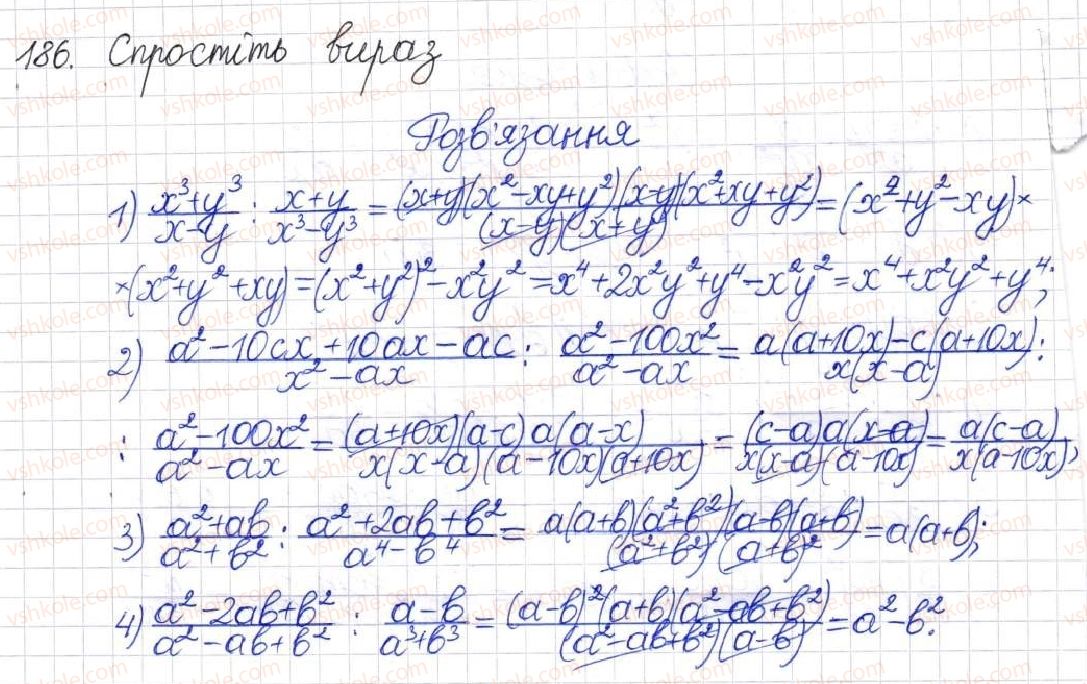 186. Спростіть вираз
Розв'язання
1) (x³+y³)/(x-y) : (x+y)/(x³-y³) = ((x+y)(x²-xy+y²)(x-y)(x²+xy+y²))/((x-y)(x+y)) = (x²+y²-xy)×
×(x²+y²+xy)=(x²+y²)²-x²y²=x⁴+2x²y²+y⁴-x²y²=x⁴+x²y²+y⁴;
2) (a²-10cx+10ax-ac)/(x²-ax) : (a²-100x²)/(a²-ax) = (a(a+10x)-c(a+10x))/(x(x-a)) :
: (a²-100x²)/(a²-ax) = ((a+10x)(a-c)a(a-x))/(x(x-a)(a-10x)(a+10x)) = ((c-a)a(x-a))/(x(x-a)(a-10x)) = (a(c-a))/(x(a-10x));
3) (a²+ab)/(a²+b²) : (a²+2ab+b²)/(a⁴-b⁴) = (a(a+b)(a²+b²)(a-b)(a+b))/((a²+b²)(a+b)²) = a(a+b);
4) (a²-2ab+b²)/(a²-ab+b²) : (a-b)/(a³+b³) = ((a-b)²(a+b)(a²-ab+b²))/((a²-ab+b²)(a-b)) = a²-b².